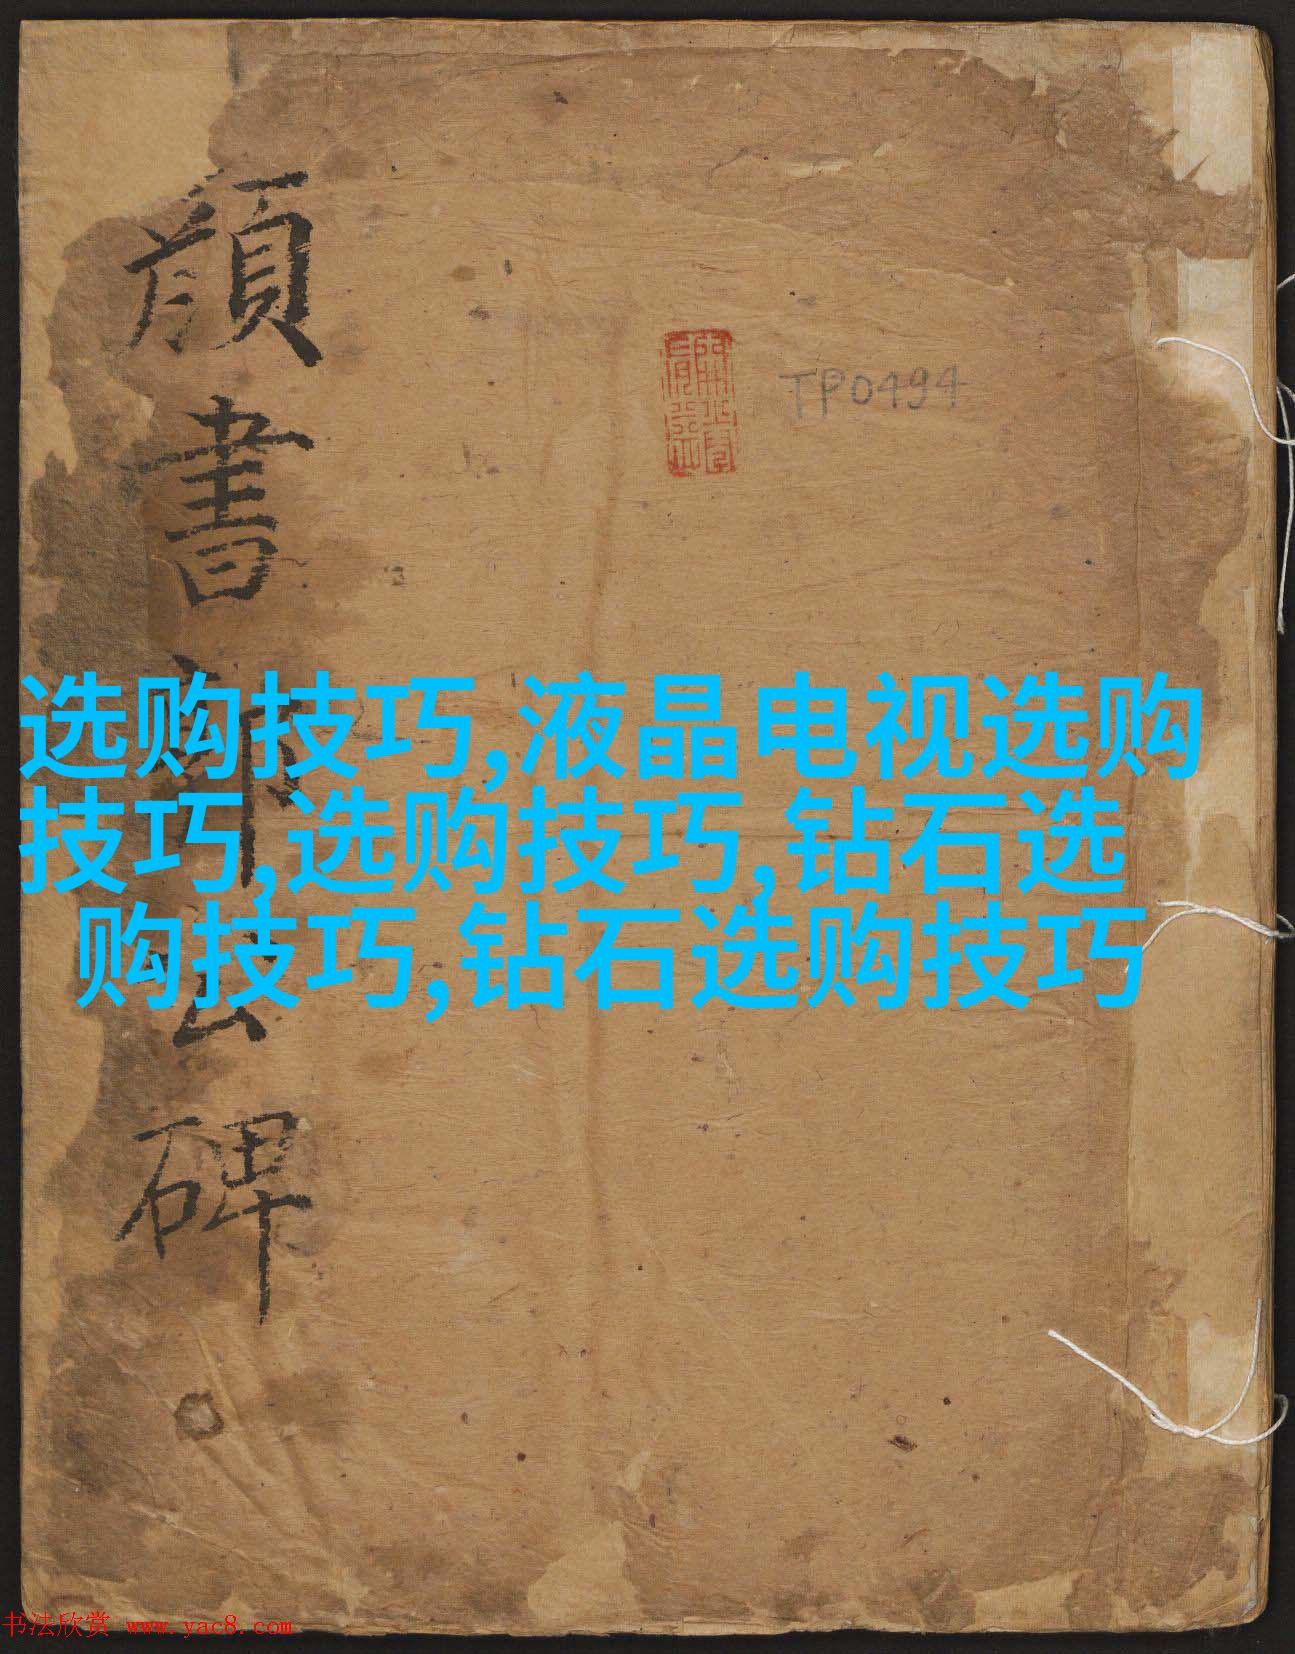 顔書郭公碑
TP0494
选购技巧,液晶电视选购
技巧,选购技巧,钻石选
购技巧,钻石选购技巧
书法欣赏 www.yac8.com